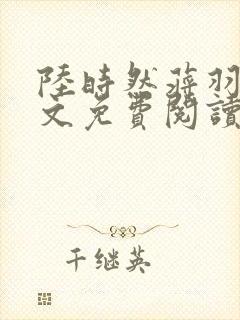 陸時然蒋羽
文免費閱讀
千继英